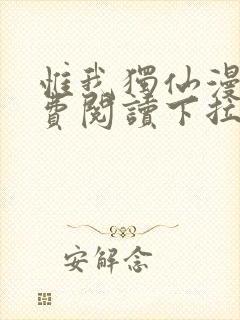 惟我獨仙漫
費閱讀下拉
安解念